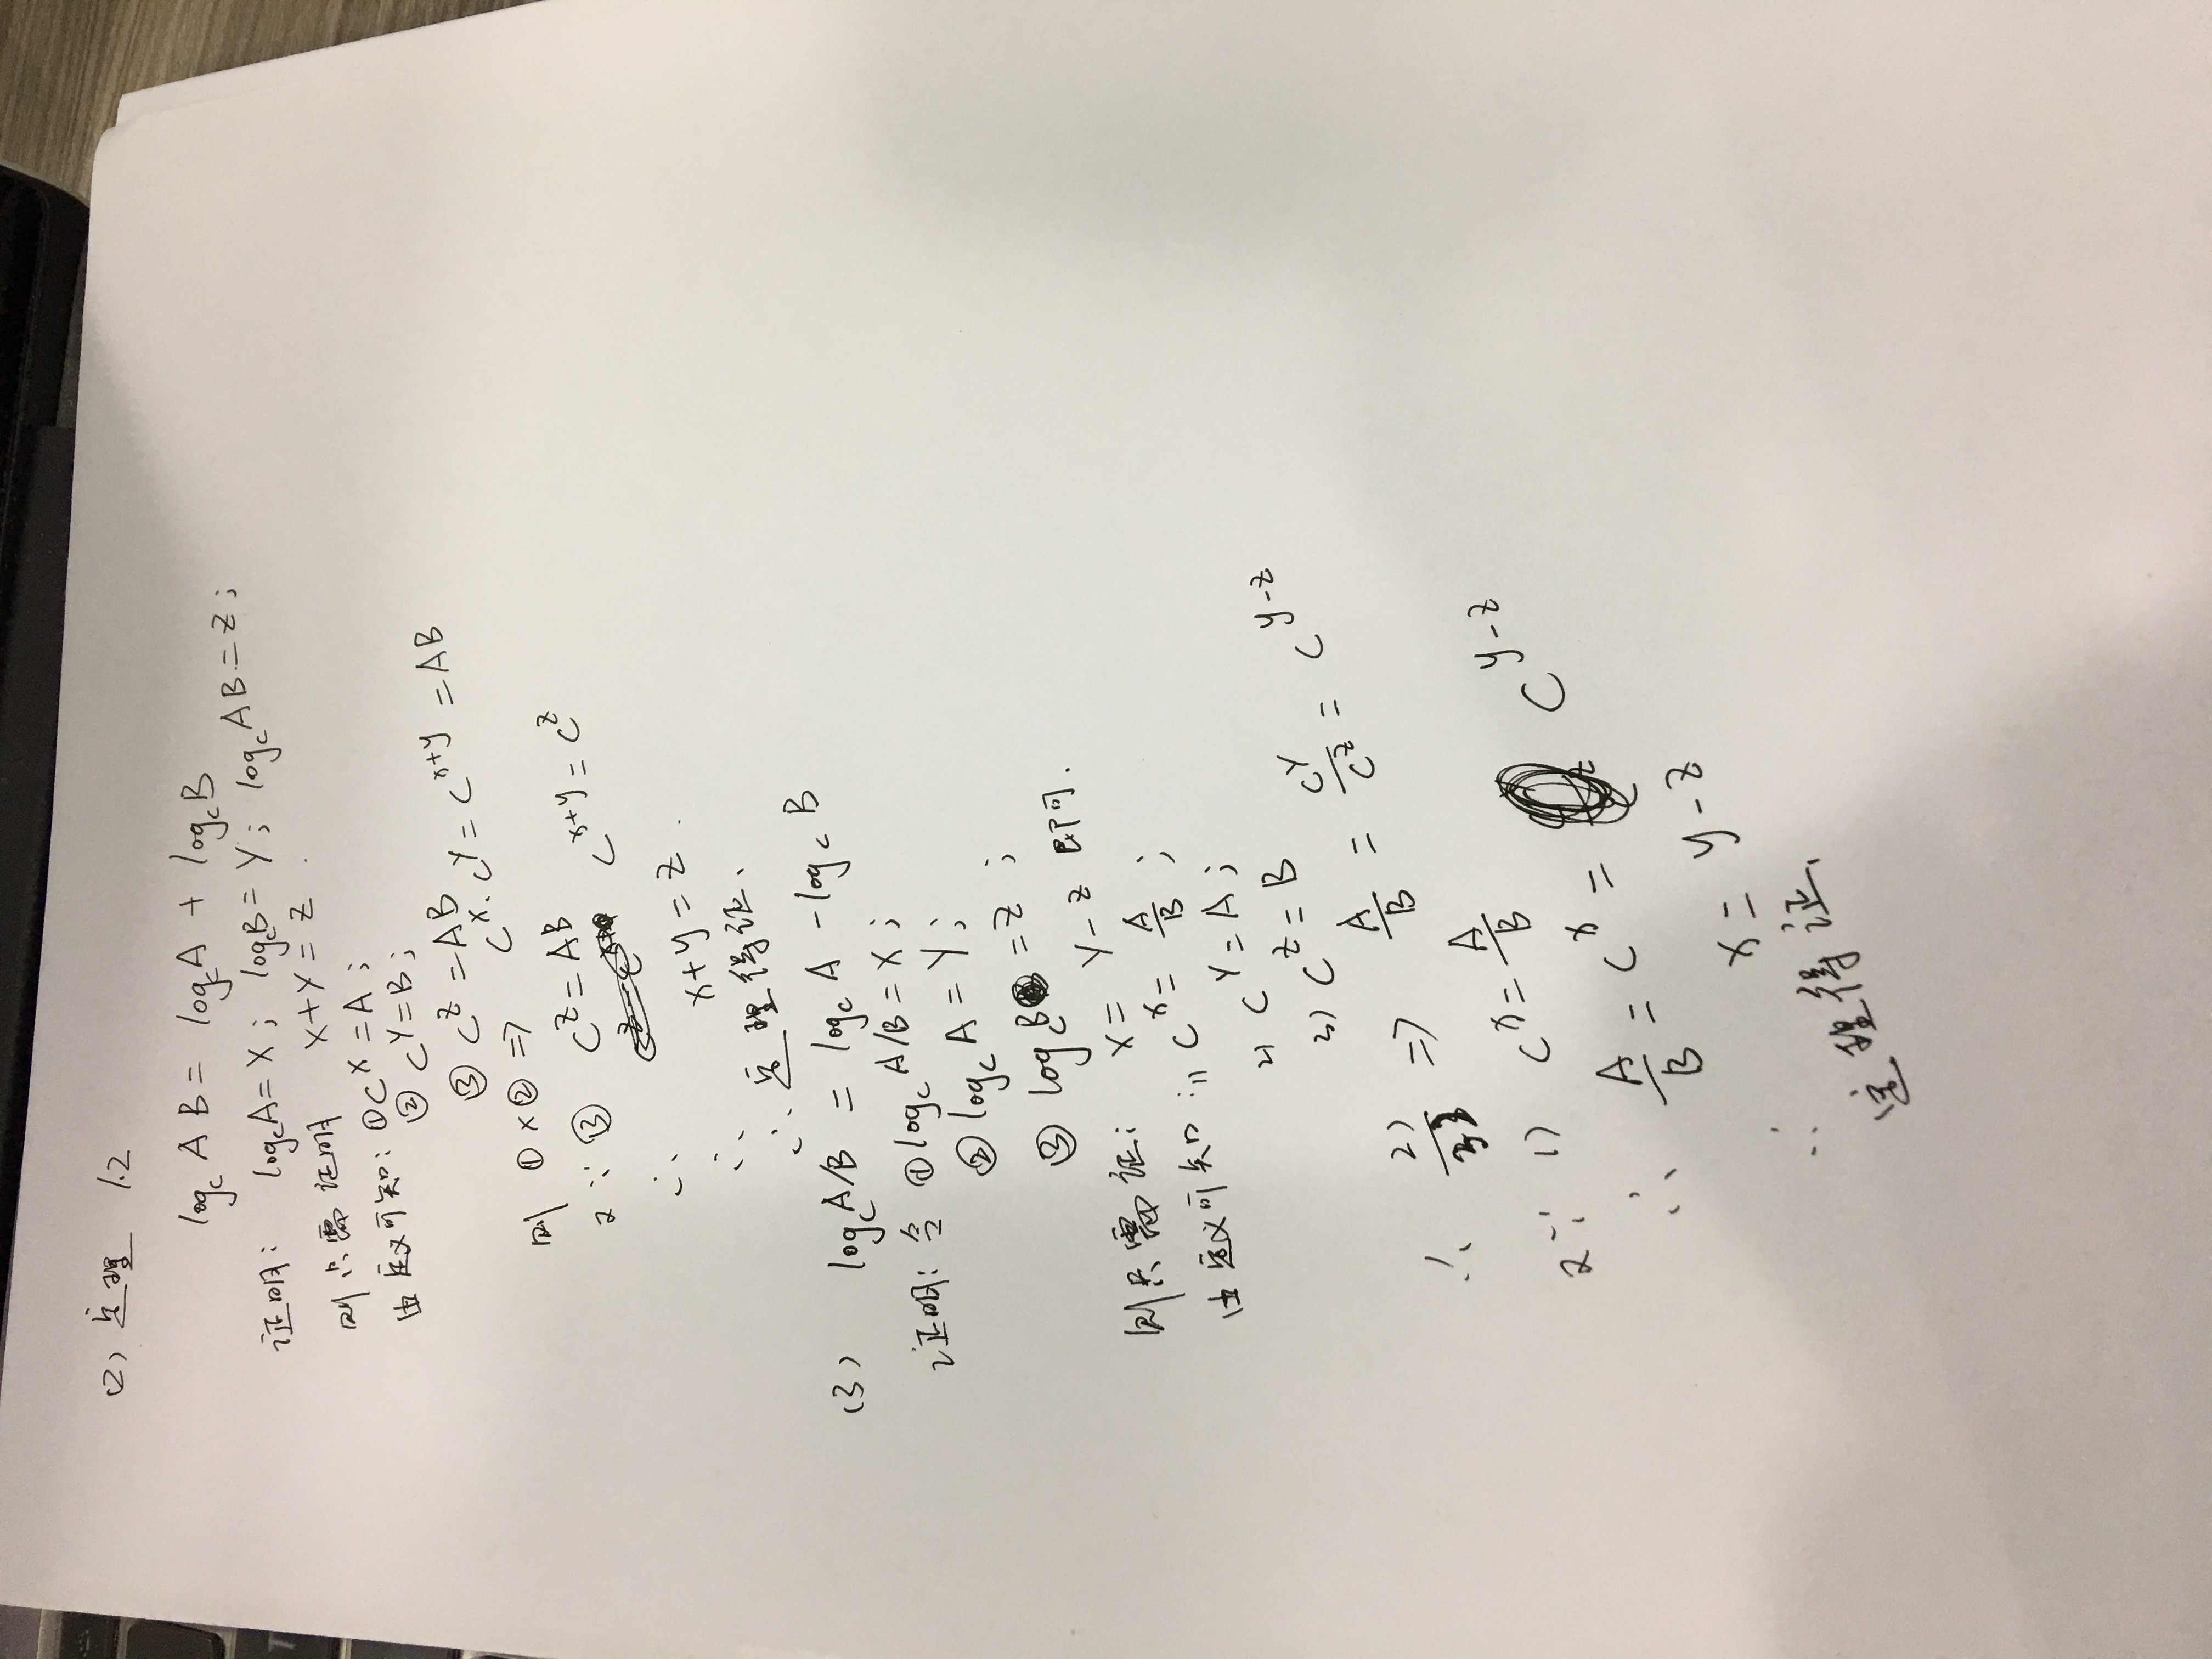 (2) 定理 1.2
log_c AB = log_c A + log_c B
证明: log_c A = X; log_c B = Y; log_c AB = Z;
则只需证明 X+Y=Z.
由定义可知: ① C^X = A;
② C^Y = B;
③ C^Z = AB
则 ①×② => C^X · C^Y = C^{x+y} = AB
又∵ ③ C^Z = AB
∴ C^{x+y} = C^Z
∴ x+y=z.
∴ 定理得证.
(3) log_c A/B = log_c A - log_c B
证明: 令 ① log_c A/B = X;
② log_c A = Y;
③ log_c B = Z;
则只需证: X = Y-Z 即可.
由定义可知: 1) C^x = \frac{A}{B};
2) C^Y = A;
3) C^Z = B
∴ \frac{2)}{3)} => \frac{A}{B} = \frac{C^Y}{C^Z} = C^{y-z}
又∵ 1) C^x = \frac{A}{B}
∴ \frac{A}{B} = C^x = C^{y-z}
∴ x = y-z
定理得证.